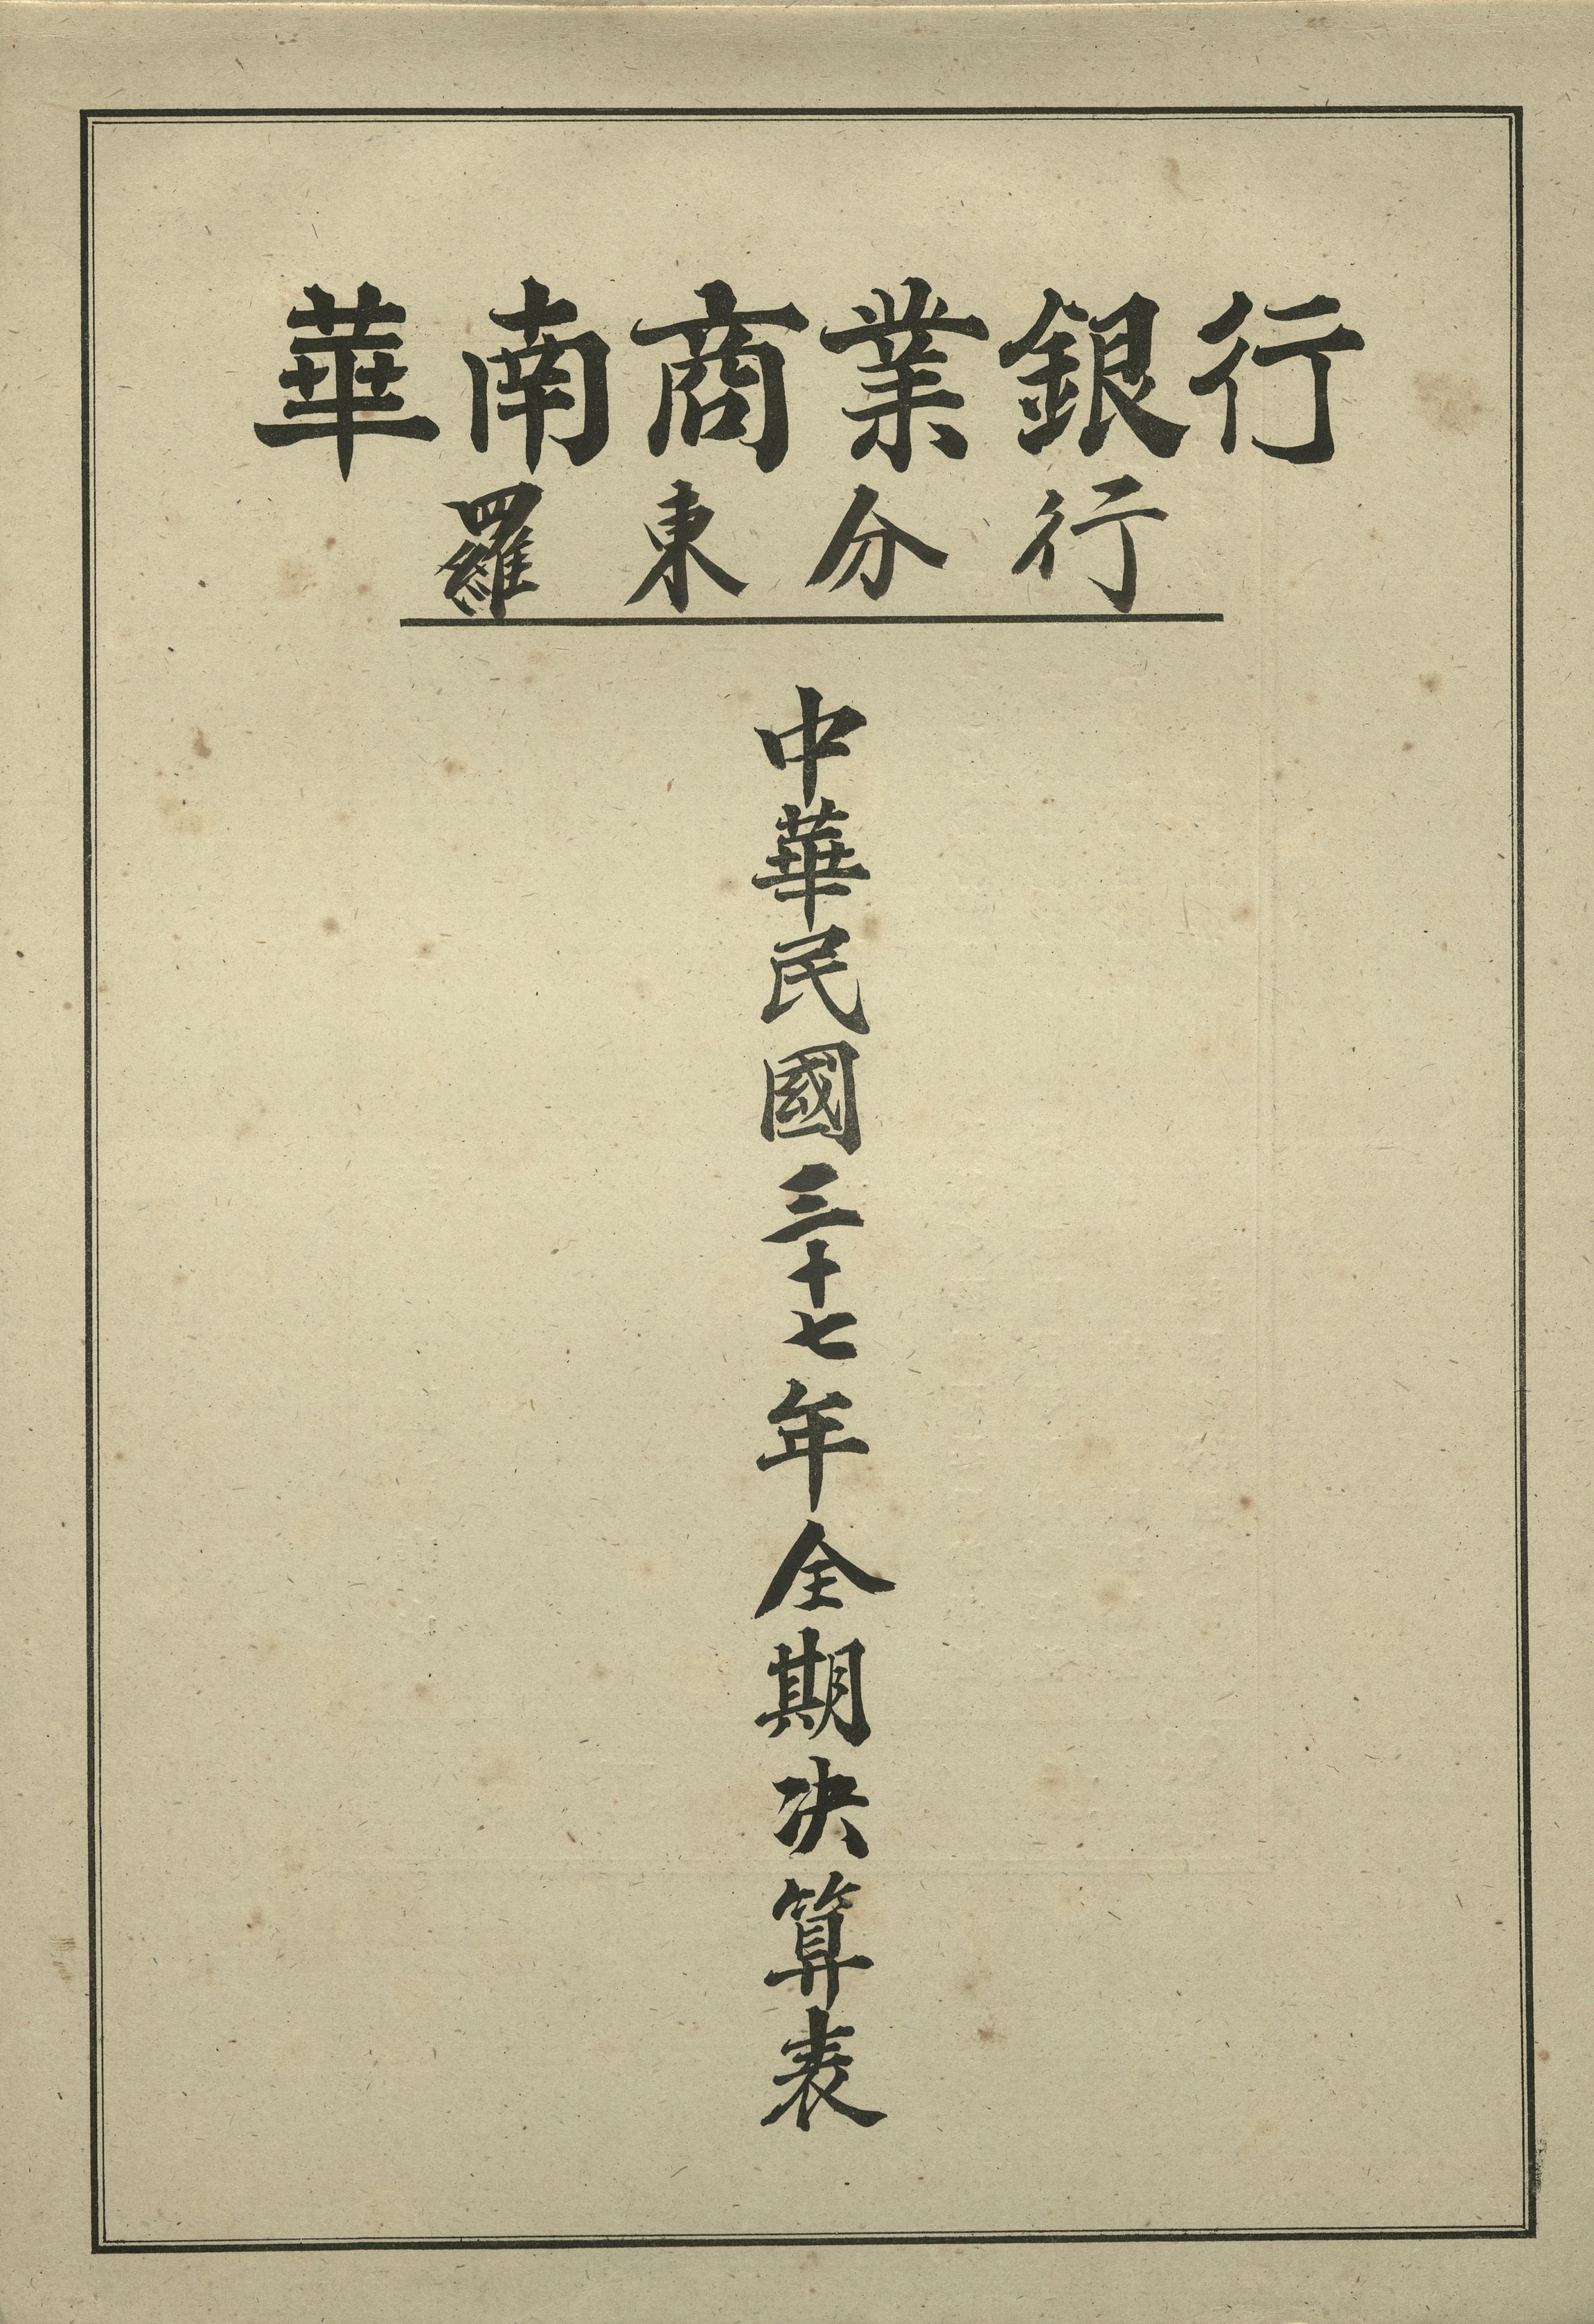 華南商業銀行
羅東分行
中華民國三十七年全期決算表